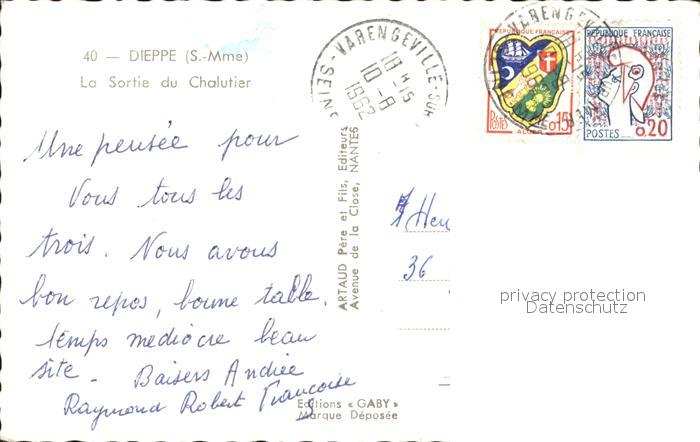 40 — DIEPPE (S.-Mme)
La Sortie du Chalutier
VARENGEVILLE-SUR
SEINE
18 H 15
10-8
1962
REPUBLIQUE FRANÇAISE
POSTES
0,15
ALGER
REPUBLIQUE FRANÇAISE
POSTES
0,20
Une pensée pour
Vous tous les
trois. Nous avons
bon repos, bonne table,
temps médiocre beau
site - Baisers Andrée
Raymond Robert Françoise
ARTAUD Père et Fils, Editeurs
Avenue de la Close, NANTES
Hen
36
Editions « GABY »
Marque Déposée
privacy protection
Datenschutz